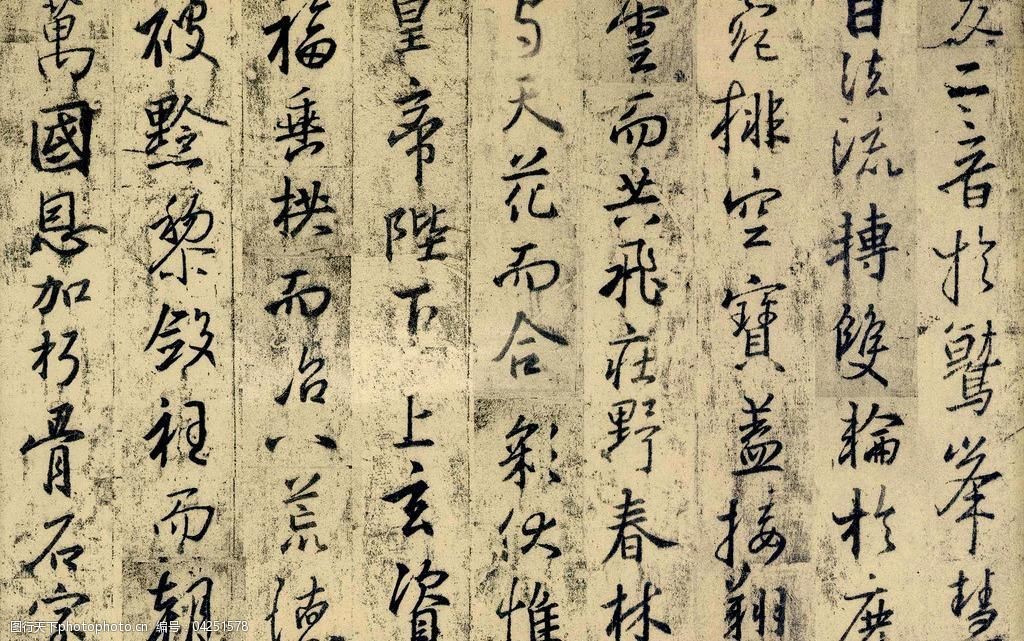 交二音於鷲峯慧
日法流轉雙輪於鹿
菀排空寶蓋接翔
雲而共飛莊野春林
與天花而合彩伏惟
皇帝陛下上玄資
福垂拱而治八荒德
被黔黎斂衽而朝
萬國恩加朽骨石室
图行天下photophoto.cn 编号：04251578